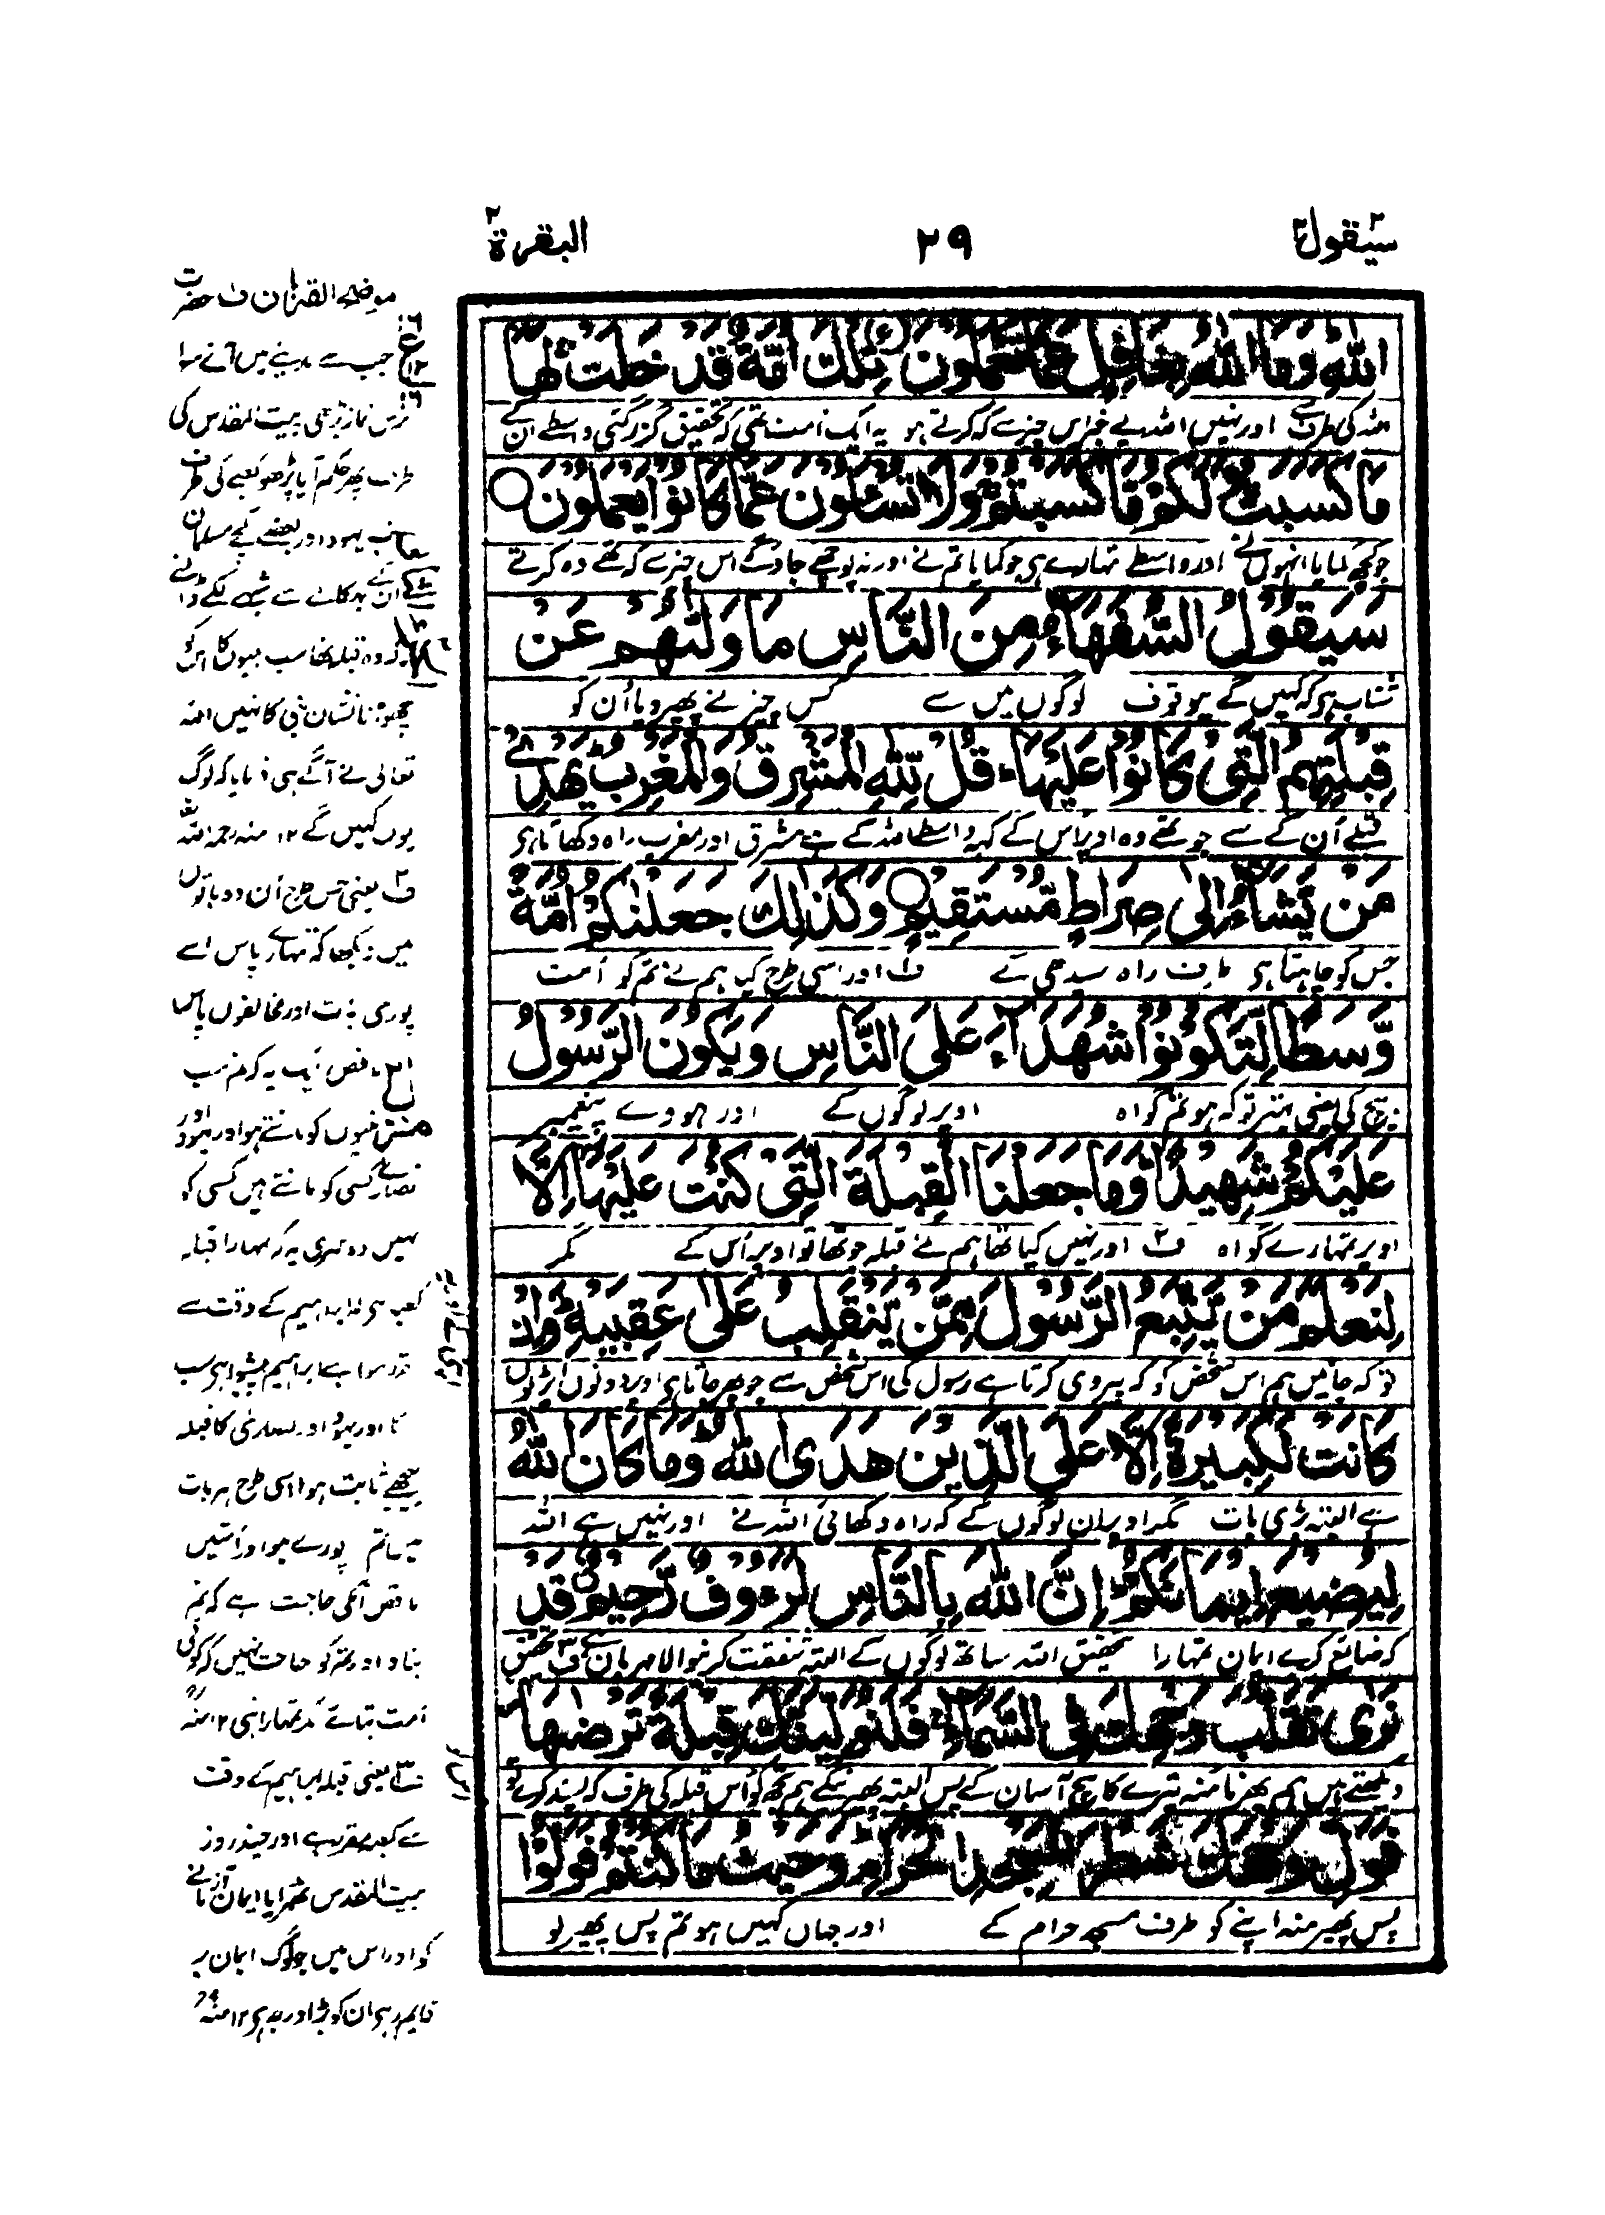 سيقول ٢
٢٩
البقرة ٢
اللّٰهِ وَمَا اللّٰهُ بِغَافِلٍ عَمَّا تَعْمَلُونَ تِلْكَ اُمَّةٌ قَدْ خَلَتْ لَهَا
اللہ کی طرف سے اور نہیں اللہ بے خبر اس چیز سے کہ کرتے ہو یہ ایک امت تھی کہ تحقیق گزر گئی واسطے ان کے
مَا كَسَبَتْ وَلَكُمْ مَّا كَسَبْتُمْ وَلَا تُسْـَٔلُونَ عَمَّا كَانُوْا يَعْمَلُونَ
جو کچھ کمایا انہوں نے اور واسطے تمہارے ہی جو کمایا تم نے اور نہ پوچھے جاؤگے اس چیز سے کہ تھے وہ کرتے
سَيَقُولُ السُّفَهَآءُ مِنَ النَّاسِ مَا وَلّٰىهُمْ عَنْ
شتاب ہی کہ کہیں گے بیوقوف لوگوں میں سے کس چیز نے پھیر دیا اُن کو
قِبْلَتِهِمُ الَّتِيْ كَانُوْا عَلَيْهَا قُلْ لِّلّٰهِ الْمَشْرِقُ وَالْمَغْرِبُ يَهْدِيْ
قبلے اُن کے سے جو تھے وہ اوپر اس کے کہہ واسطے اللہ کے ہے مشرق اور مغرب راہ دکھاتا ہی
مَنْ يَّشَآءُ اِلٰى صِرَاطٍ مُّسْتَقِيْمٍ وَكَذٰلِكَ جَعَلْنٰكُمْ اُمَّةً
جس کو چاہتا ہی طرف راہ سیدھی کے ف اور اسی طرح کیا ہم نے تم کو اُمت
وَّسَطًا لِّتَكُوْنُوْا شُهَدَآءَ عَلَى النَّاسِ وَيَكُوْنَ الرَّسُوْلُ
بیچ کی یعنی بہتر تو کہ ہو تم گواہ اوپر لوگوں کے اور ہووے پیغمبر
عَلَيْكُمْ شَهِيْدًا وَمَا جَعَلْنَا الْقِبْلَةَ الَّتِيْ كُنْتَ عَلَيْهَا اِلَّا
اوپر تمہارے گواہ ف٢ اور نہیں کیا تھا ہم نے قبلہ جو تھا تو اوپر اُس کے مگر
لِنَعْلَمَ مَنْ يَّتَّبِعُ الرَّسُوْلَ مِمَّنْ يَّنْقَلِبُ عَلٰى عَقِبَيْهِ وَاِنْ
تو کہ جانیں ہم اس شخص کو کہ پیروی کرتا ہے رسول کی اس شخص سے جو پھر جاتا ہی اوپر دونوں ایڑیوں
كَانَتْ لَكَبِيْرَةً اِلَّا عَلَى الَّذِيْنَ هَدَى اللّٰهُ وَمَا كَانَ اللّٰهُ
ہے البتہ بڑی بات مگر اوپر ان لوگوں کے کہ راہ دکھائی اللہ نے اور نہیں ہے اللہ
لِيُضِيْعَ اِيْمَانَكُمْ اِنَّ اللّٰهَ بِالنَّاسِ لَرَءُوْفٌ رَّحِيْمٌ قَدْ
کہ ضائع کرے ایمان تمہارا تحقیق اللہ ساتھ لوگوں کے البتہ شفقت کرنیوالا مہربان ہے ف٣ تحقیق
نَرٰى تَقَلُّبَ وَجْهِكَ فِي السَّمَآءِ فَلَنُوَلِّيَنَّكَ قِبْلَةً تَرْضٰىهَا
دیکھتے ہیں ہم پھرنا منہ تیرے کا بیچ آسمان کے پس البتہ پھیرینگے ہم تجھ کو اُس قبلہ کی طرف کہ پسند کرے تو
فَوَلِّ وَجْهَكَ شَطْرَ الْمَسْجِدِ الْحَرَامِ وَحَيْثُ مَا كُنْتُمْ فَوَلُّوْا
پس پھیر منہ اپنے کو طرف مسجد حرام کے اور جہاں کہیں ہو تم پس پھیر لو
موضح القرآن ف حضرت
جب سے مدینے میں آئے سوا
برس نماز پڑھی بیت المقدس کی
طرف پھر حکم آیا پڑھو کعبے کی طرف
تب یہود اور بعضے کچے مسلمان
ان کے بہکانے سے شبہے لگے ڈالنے
کہ وہ قبلہ تھا سب نبیوں کا اس کو
چھوڑنا نشان نبی کا نہیں اللہ
تعالی نے آگے ہی فرمایا کہ لوگ
یوں کہیں گے ١٢ منہ رحمہ اللہ
ف٢ یعنی جس طرح اُن دو باتوں
میں دیکھا کہ تمہارے پاس ہے
پوری بات اور مخالفوں پاس
ناقص ایک یہ کہ تم سب
نبیوں کو مانتے ہو اور یہود اور
نصارے کسی کو مانتے ہیں کسی کو
نہیں دوسری یہ کہ تمہارا قبلہ
کعبہ ہی کہ ابراہیم کے وقت سے
مقرر ہوا ہے ابراہیم پیشوا ہی سب
کا اور یہود اور نصاری کا قبلہ
پیچھے ثابت ہوا اسی طرح ہر بات
میں تم پورے ہو اور اُمتیں
ناقص انکی حاجت ہے کہ تم
بتاؤ اور تم کو حاجت نہیں کہ کوئی
اُمت بتاے مگر تمہارا نبی ١٢ منہ
ف٣ یعنی قبلہ ابراہیم کے وقت
سے کعبہ مقرر ہے اور چند روز
بیت المقدس ٹھہرایا ایمان آزمانے
کو اور اس میں جو لوگ ایمان پر
قایم رہے ان کو بڑا درجہ ہی ١٢ منہ